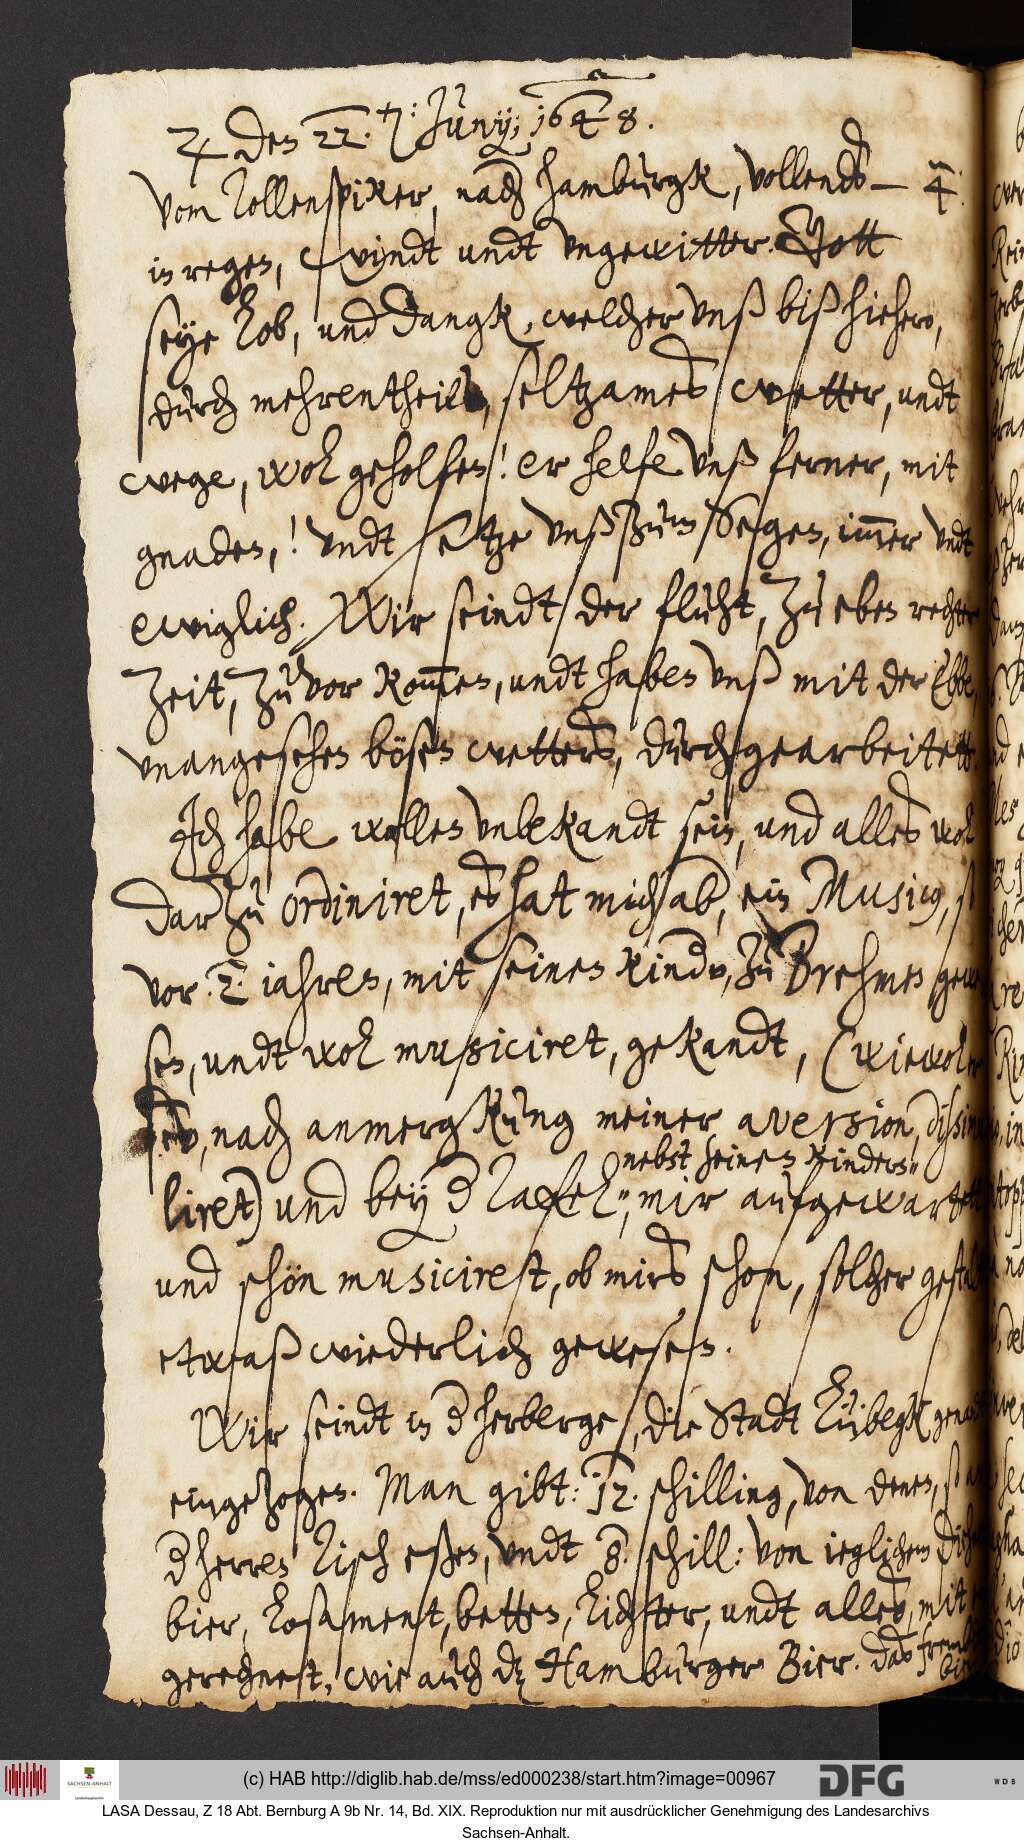 ♃ den 22. Junij; 1648.
Vom Zollenspiker, nach hamburgk, vollends — 4.
in regen, windt undt vngewitter. Gott
seye Lob, und Dangk, welcher vnß biß hieher,
durch mehrentheils, seltzames wetter, undt
wege, wol geholfen! er helfe vnß ferner, mit
gnaden,! vndt setze vnß zum Segen, immer vndt
ewiglich. Wir seindt der fluht, zu eben rechter
Zeit, zuvor kommen, undt haben vnß mit der Ebbe,
vnangesehen bösen wetters, durchgearbeitett.
Ich habe wollen vnbekandt sein, und alles wol
darzu ordiniret, es hat mich ab, ein Musicus, so
vor .2. iahren, mit seinen kindern, zu Brehmen gewe
sen, undt wol musiciret, gekandt, (wiewol er
nach anmergkung meiner aversion, dissimu
liret) und bey der Tafel, mir aufgewartett
nebst seinen Kindern
und schön musiciret, ob mirs schon, solcher gestalt
etwaß wiederlich gewesen.
Wir seindt in der herberge, die Stadt Lübegk genandt
eingezogen. Man gibt: 12. schilling, von denen, so an
der herren Tisch eßen, vndt 8. schill: von ieglichem
bier, Losament, betten, Lichter, undt alles, mit
gerechnet, wie auch dz Hamburger Bier. Das frembde
bier
(c) HAB http://diglib.hab.de/mss/ed000238/start.htm?image=00967
DFG
WDB
SACHSEN-ANHALT
LASA Dessau, Z 18 Abt. Bernburg A 9b Nr. 14, Bd. XIX. Reproduktion nur mit ausdrücklicher Genehmigung des Landesarchivs
Sachsen-Anhalt.